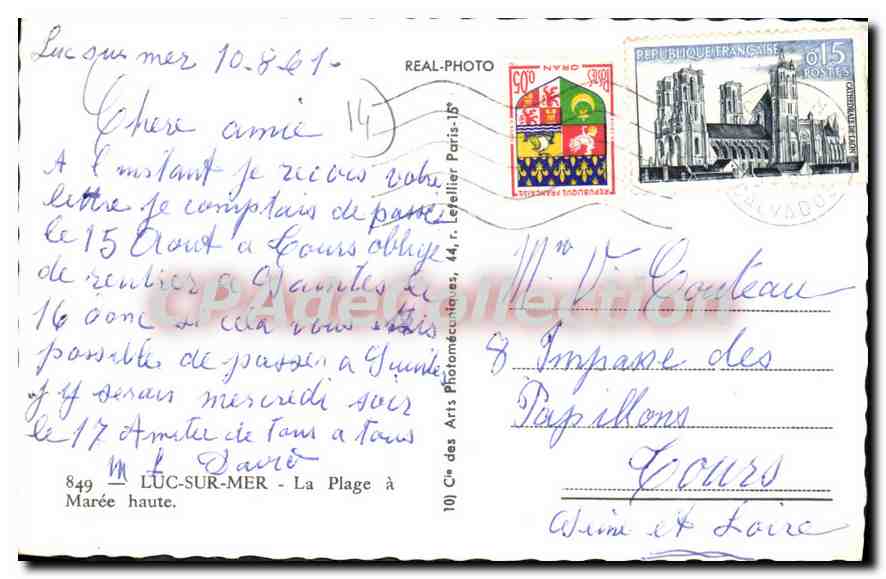 Luc sur mer 10-8-61-
14
Chere amie
A l'instant je recois votre
lettre je comptais de passer
le 15 Aout a Tours oblige
de rentrer a Saintes le
16 donc si cela vous
possible de passer a Saintes
j y serais mercredi soir
le 17 Amitie de tous a tous
849 — LUC-SUR-MER - La Plage à
Marée haute.
REAL-PHOTO
10) Cie des Arts Photomécaniques, 44, r. Letellier Paris-15e
POSTES
ORAN
0,05
REPUBLIQUE FRANÇAISE
REPUBLIQUE FRANÇAISE
0,15
POSTES
CATHEDRALE DE LAON
CALVADOS
Mme Vve Couteau
8 Impasse des
Papillons
Tours
et Loire
CPAdeCollection